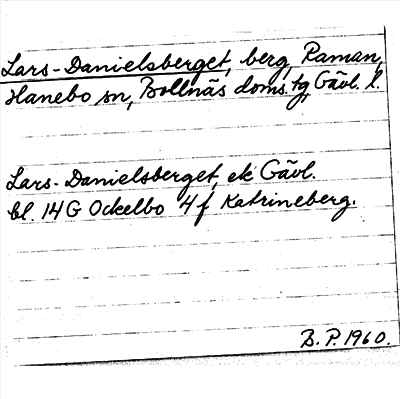 Lars-Danielsberget, berg, Raman,
Hanebo sn, Bollnäs doms. tg, Gävl. l.
Lars-Danielsberget, ek Gävl.
bl. 14G Ockelbo 4f Katrineberg.
B. P. 1960.